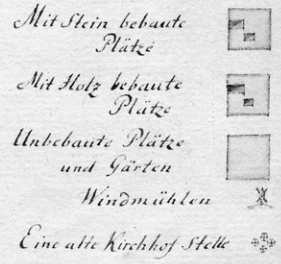 Mit Stein bebaute
Plätze
Mit Holz bebaute
Plätze
Unbebaute Plätze
und Gärten
Windmühlen
Eine alte Kirchhof Stelle